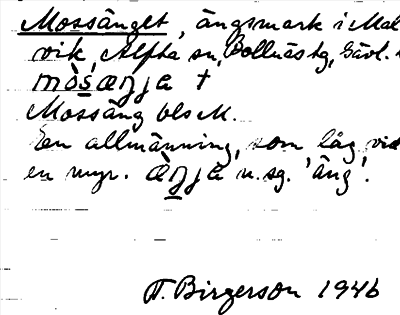 Mossänget, ängsmark i Mal
vik, Alfta sn, Bollnäs tg, Gävl.
mòs̀æŋja †
Mossäng bls M.
En allmänning, som låg vid
en myr. æ̀ŋja n. sg. 'äng'.
T. Birgerson 1946